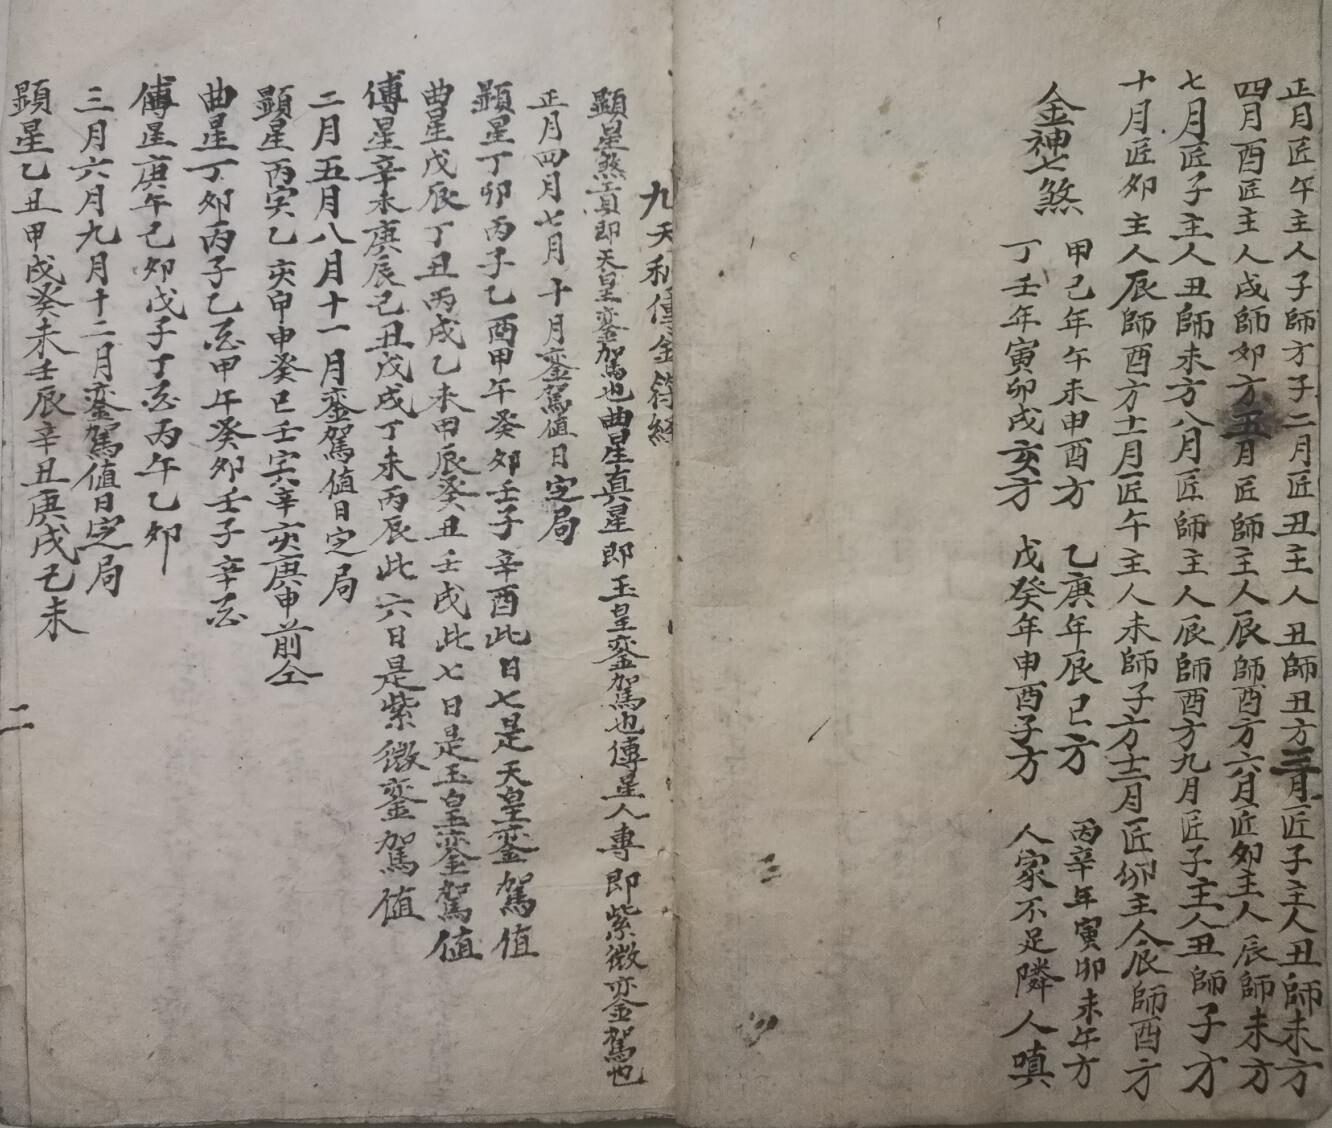 正月匠午主人子師方子二月匠丑主人丑師丑方三月匠子主人丑師未方
四月酉匠主人戌師卯方五月匠師主人辰師酉方六月匠卯主人辰師未方
七月匠子主人丑師未方八月匠師主人辰師酉方九月匠子主人丑師子方
十月匠卯主人辰師酉方十一月匠午主人未師子方十二月匠卯主人辰師酉方
金神七煞
甲己年午未申酉方 乙庚年辰巳方 丙辛年寅卯未午方
丁壬年寅卯戌亥方 戊癸年申酉子方 人家不足隣人嗔
九天秘傳金符經
顯星煞貢即天皇鑾駕也曲星真星即玉皇鑾駕也傅星人專即紫微鑾駕也
正月四月七月十月鑾駕值日定局
顯星丁卯丙子乙酉甲午癸卯壬子辛酉此日七是天皇鑾駕值
曲星戊辰丁丑丙戌乙未甲辰癸丑壬戌此七日是玉皇鑾駕值
傅星辛未庚辰己丑戊戌丁未丙辰此六日是紫微鑾駕值
二月五月八月十一月鑾駕值日定局
顯星丙寅乙亥甲申癸巳壬寅辛亥庚申前仝
曲星丁卯丙子乙酉甲午癸卯壬子辛酉
傅星庚午己卯戊子丁酉丙午乙卯
三月六月九月十二月鑾駕值日定局
顯星乙丑甲戌癸未壬辰辛丑庚戌己未
二